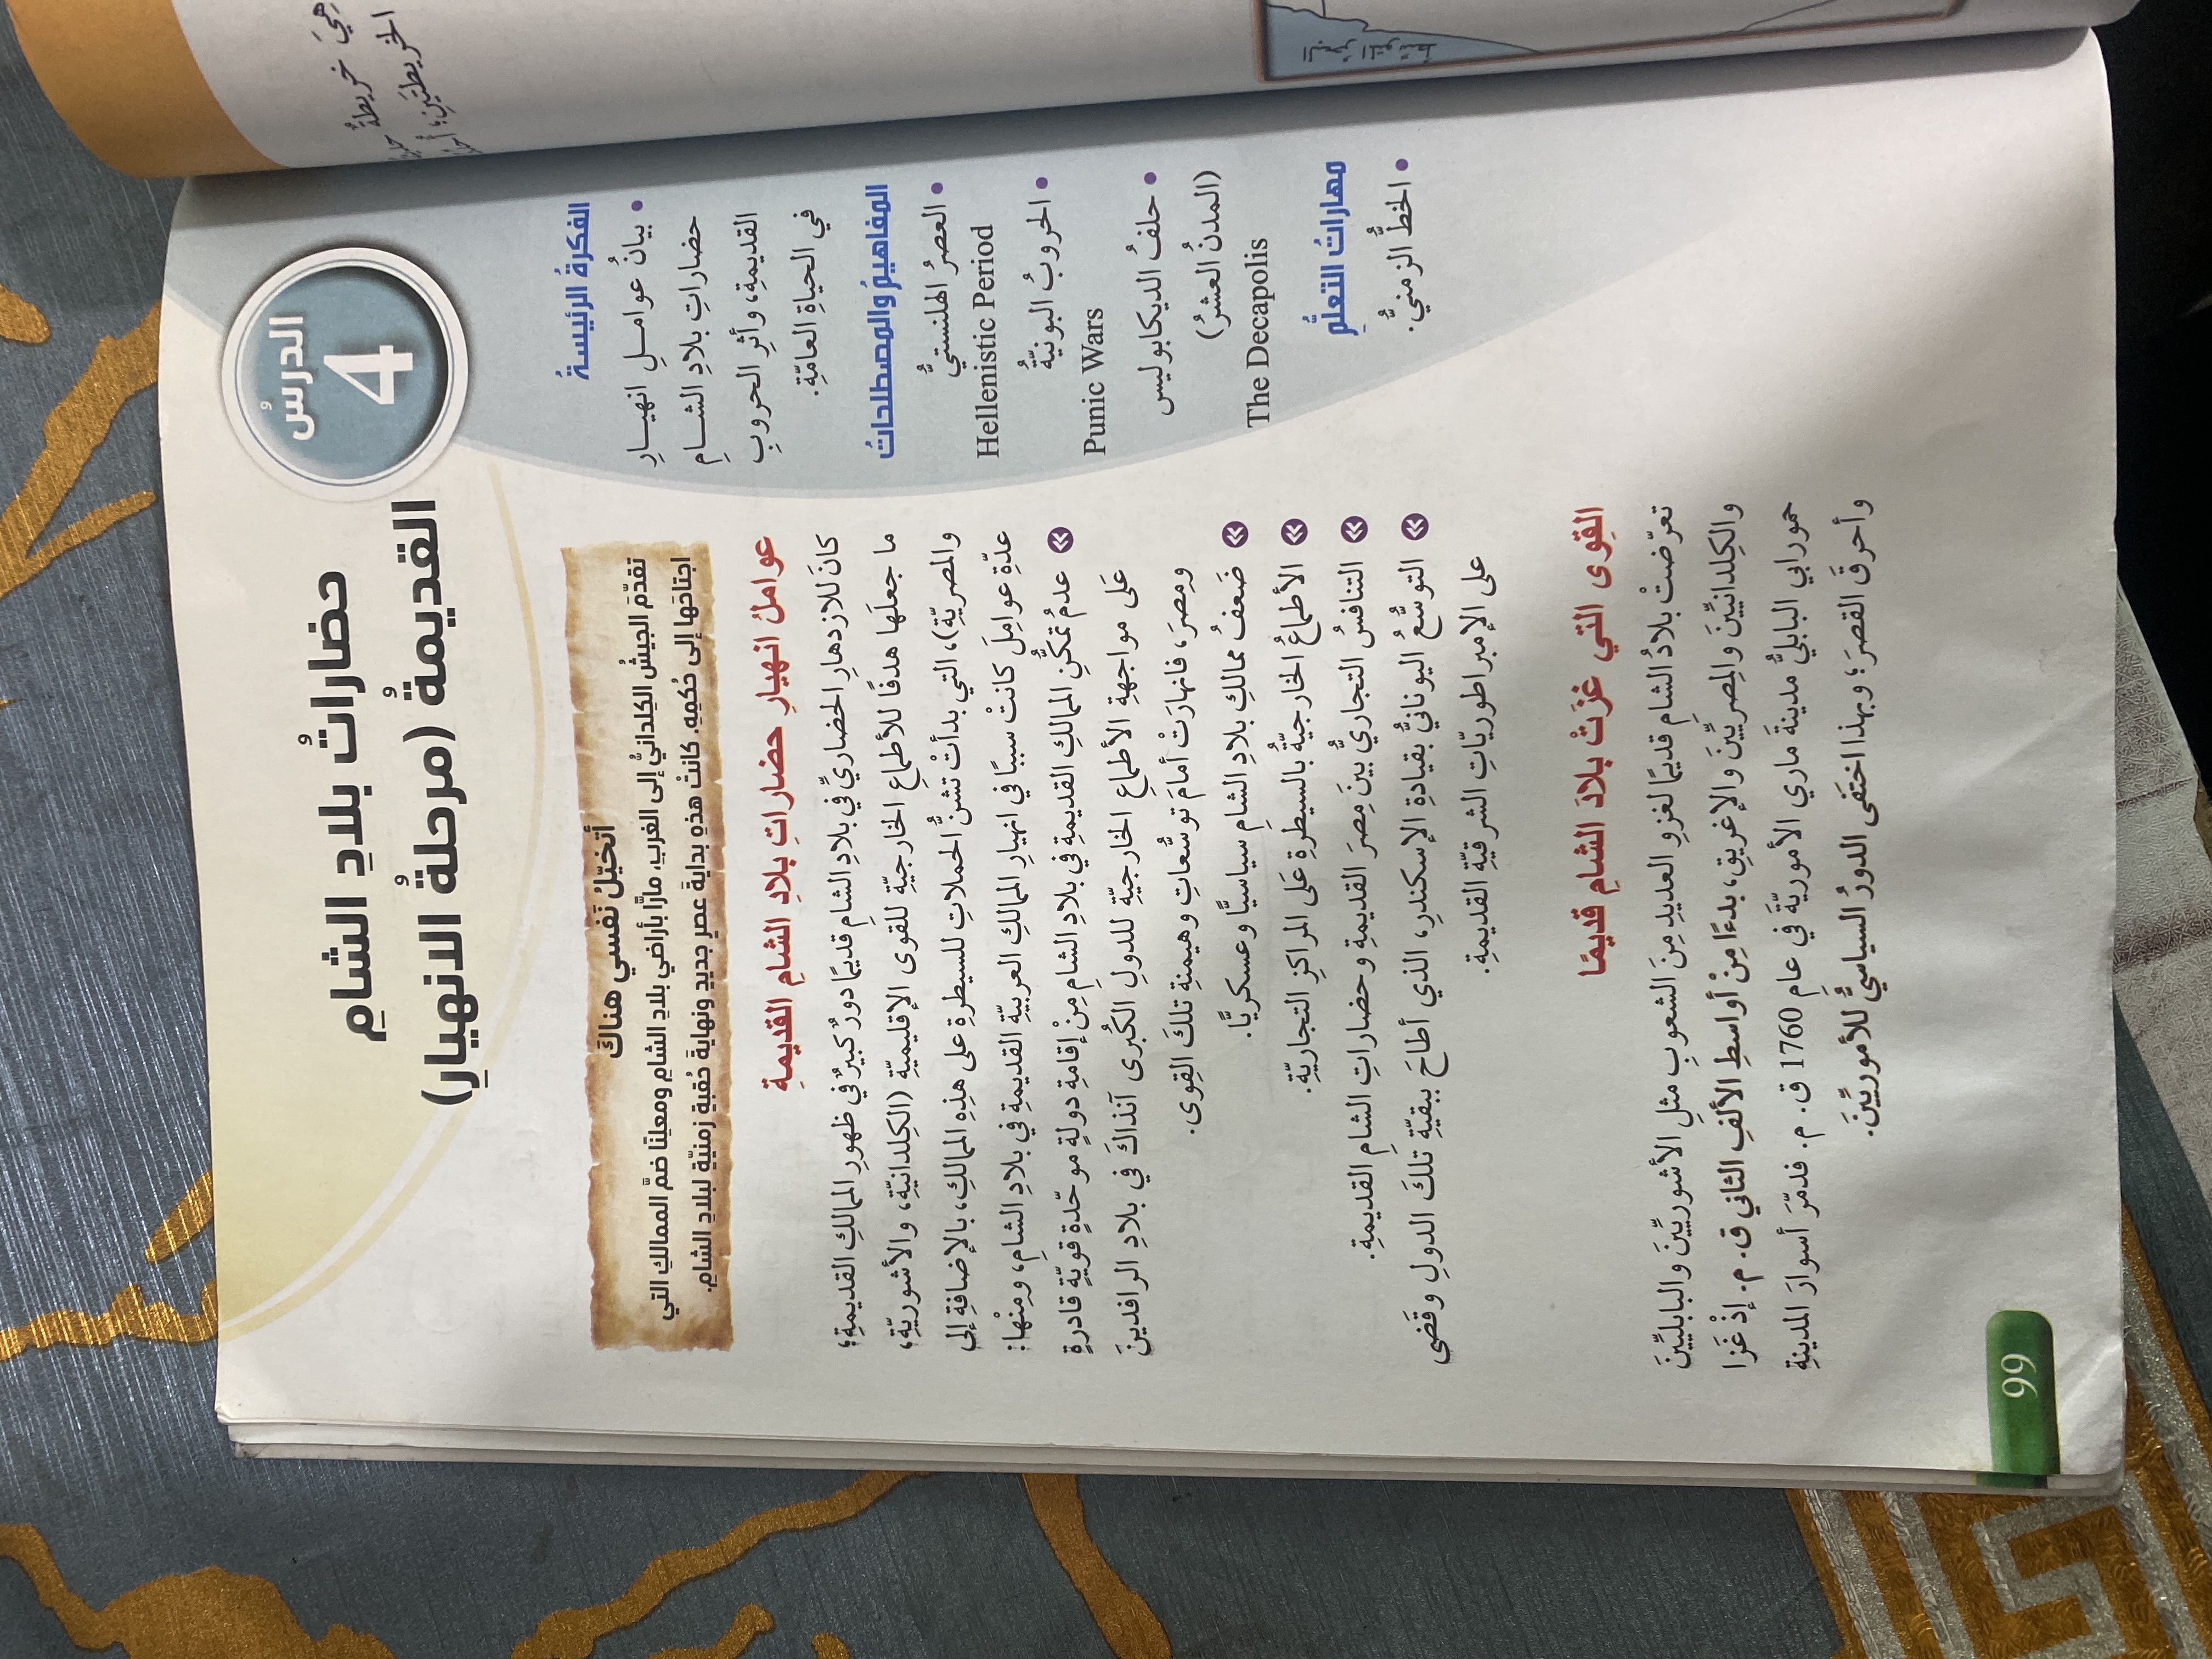 الدرسُ
4
حضاراتُ بلادِ الشامِ
القديمةُ (مرحلةُ الانهيارِ)
الفكرةُ الرئيسةُ
• بيانُ عوامـلِ انهيـارِ
حضاراتِ بلادِ الشـامِ
القديمةِ، وأثرِ الحروبِ
في الحياةِ العامّةِ.
المفاهيمُ والمصطلحاتُ
• العصرُ الهلنستيُّ
Hellenistic Period
• الحروبُ البونيّةُ
Punic Wars
• حلفُ الديكابوليس
(المدنُ العشرُ)
The Decapolis
مهاراتُ التعلُّمِ
• الخطُّ الزمنيُّ.
أتخيّلُ نَفسي هناكَ
تقدّمَ الجيشُ الكِلدانيُّ إلى الغربِ، مارًّا بأراضي بلادِ الشامِ ومعلِنًا ضمَّ الممالكِ التي
اجتاحَها إلى حُكمِهِ. كانتْ هذهِ بدايةَ عصرٍ جديدٍ ونهايةَ حُقبةٍ زمنيّةٍ لبلادِ الشامِ.
عواملُ انهيارِ حضاراتِ بلادِ الشامِ القديمةِ
كانَ للازدهارِ الحضاريِّ في بلادِ الشامِ قديمًا دورٌ كبيرٌ في ظهورِ الممالكِ القديمةِ؛
ما جعلَها هدفًا للأطماعِ الخارجيّةِ للقوى الإقليميّةِ (الكِلدانيّةِ، والأشوريّةِ،
والمصريّةِ)، التي بدأتْ تشنُّ الحملاتِ للسيطرةِ على هذِهِ الممالكِ، بالإضافةِ إلى
عدّةِ عوامِلَ كانتْ سببًا في انهيارِ الممالكِ العربيّةِ القديمةِ في بلادِ الشامِ، ومِنْها:
عدمُ تمكُّنِ الممالكِ القديمةِ في بلادِ الشامِ مِنْ إقامةِ دولةٍ موحّدةٍ قويّةٍ قادرةٍ
عَلى مواجهةِ الأطماعِ الخارجيّةِ للدولِ الكُبرى آنذاكَ في بلادِ الرافدينَ
ومِصرَ، فانهارَتْ أمامَ توسُّعاتِ وهيمنةِ تلكَ القِوى.
ضَعفُ ممالكِ بلادِ الشامِ سياسيًّا وعسكريًّا.
الأطماعُ الخارجيّةُ بالسيطرةِ عَلى المراكزِ التجاريّةِ.
التنافسُ التجاريُّ بينَ مِصرَ القديمةِ وحضاراتِ الشامِ القديمةِ.
التوسُّعُ اليونانيُّ بقيادةِ الإسكندرِ، الذي أطاحَ ببقيّةِ تلكَ الدولِ وقَضى
على الإمبراطوريّاتِ الشرقيّةِ القديمةِ.
القِوى التي غزَتْ بلادَ الشامِ قديمًا
تعرّضتْ بلادُ الشامِ قديمًا لغزوِ العديدِ مِنَ الشعوبِ مثلِ الأشوريّينَ والبابليّينَ
والكِلدانيّينَ والمِصريّينَ والإغريقِ، بدءًا مِنْ أواسطِ الألفِ الثاني ق. م. إذْ غَزا
حمورابي البابليُّ مدينةَ ماري الأموريّةَ في عامِ 1760 ق. م. فدمّرَ أسوارَ المدينةِ
وأحرقَ القصرَ؛ وبهذا اختَفى الدورُ السياسيُّ للأموريّينَ.
66
هِيَ خريطةُ
الخريطتَينِ؛